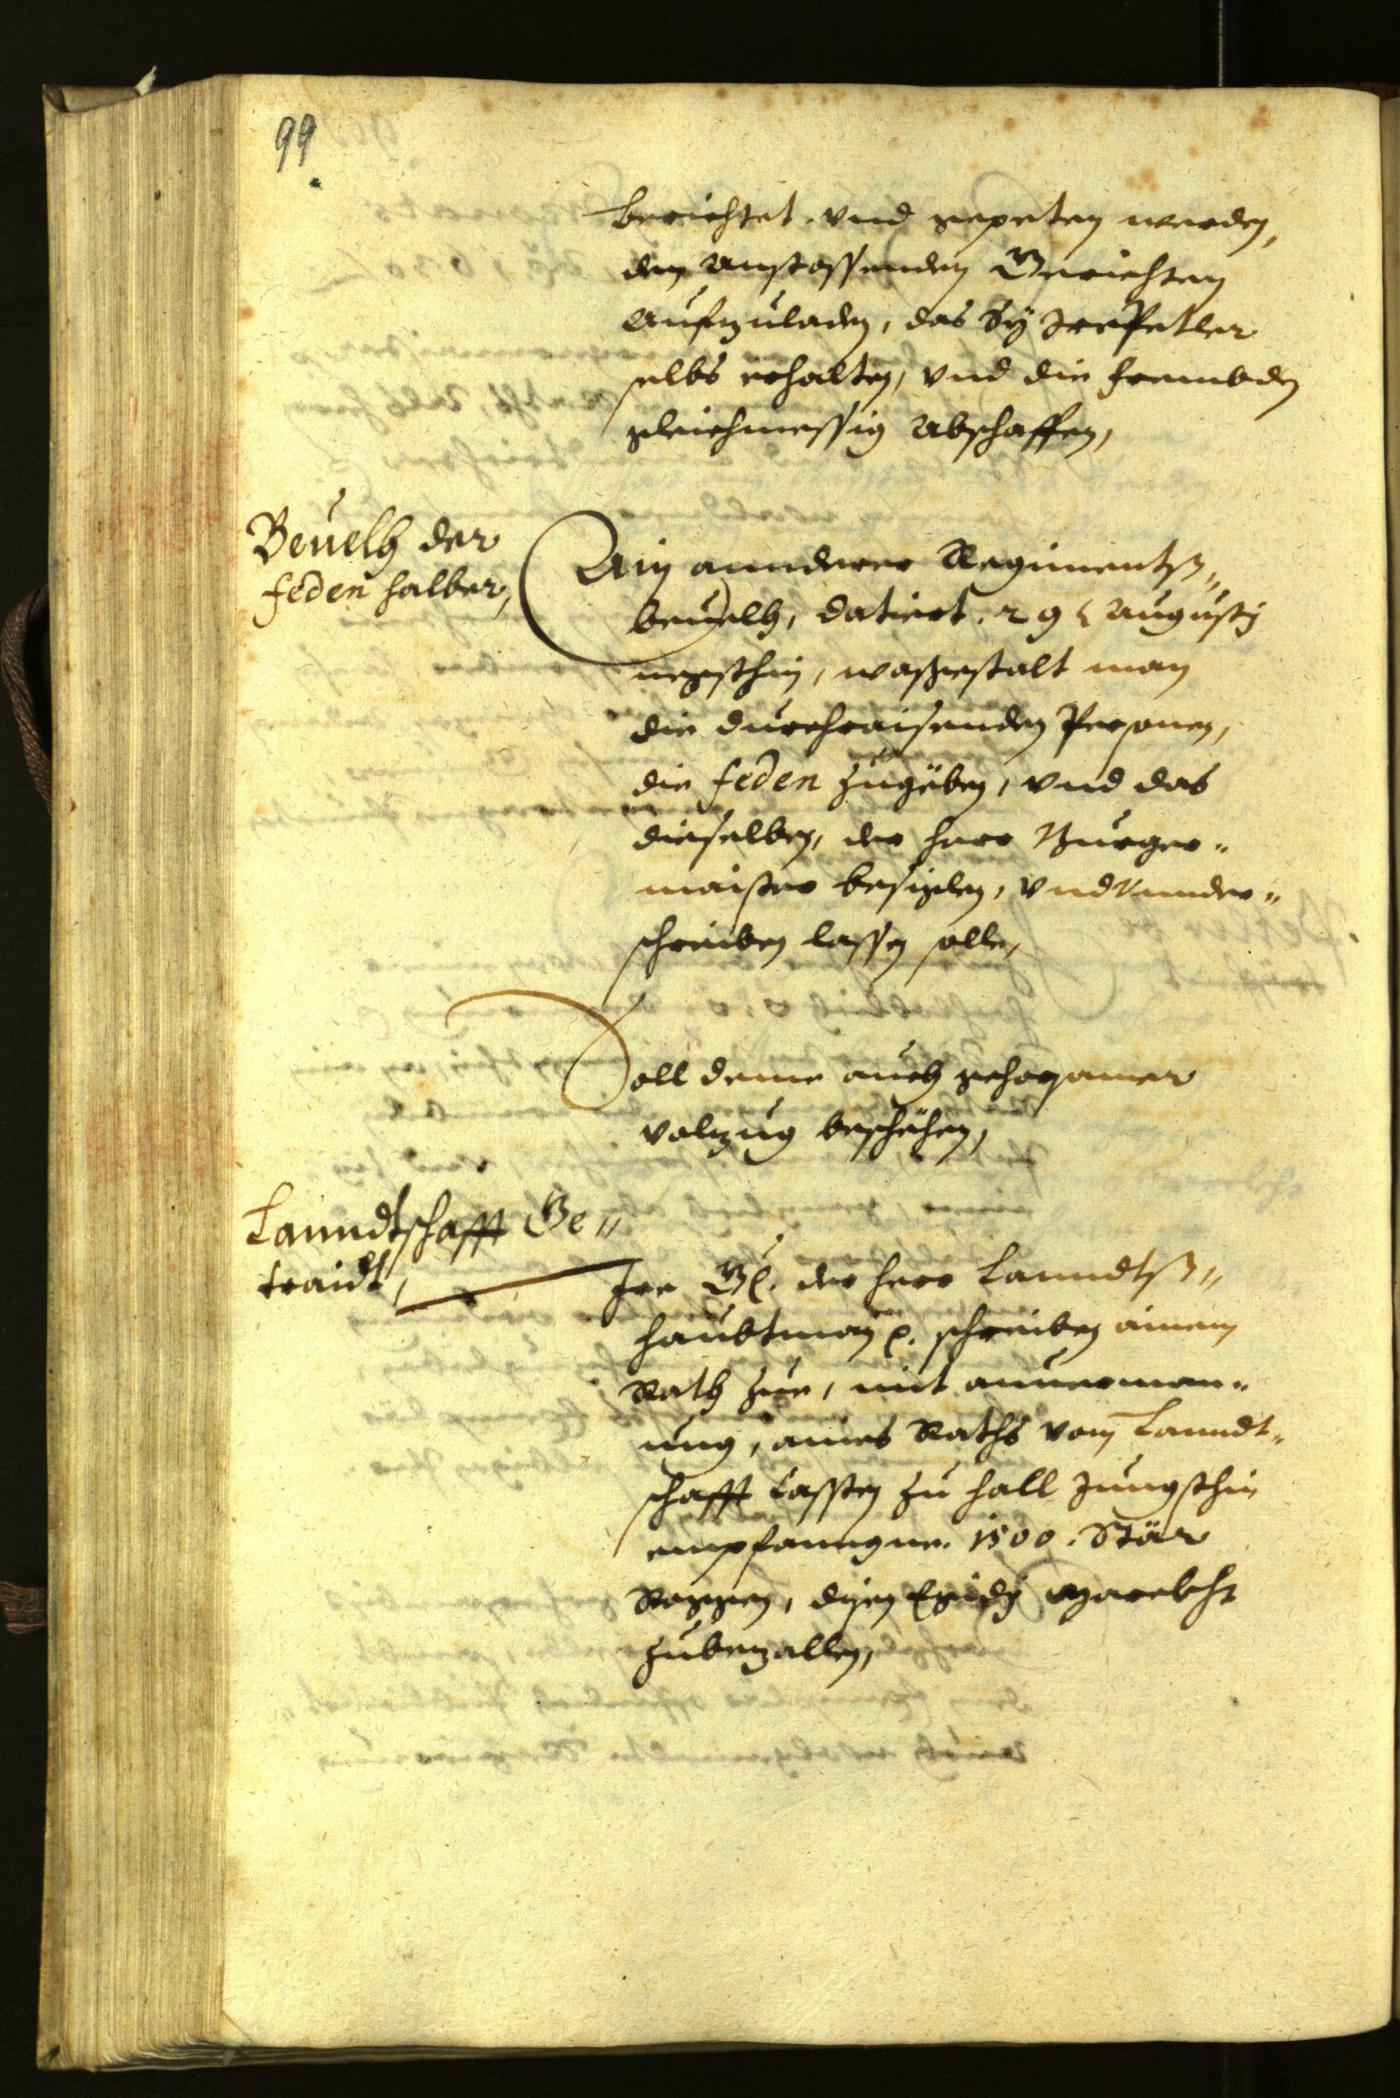 99
berichtet. vnd gepeten werden,
den anstossenden Gerichten
aufzuladen, das Sÿ Jre Petler
selbs erhalten, vnd die frembden
gleichmessig abschaffen,
Beuelh der
feden halber,
Ain annderer Regimentß„
beuelh, datiert. 29 Augustj
negsthin, waßgestalt man
die durchraisenden Personen,
die feden zugëben, vnd das
dieselben, der herr Burger„
maister besiglen, vnd vnnder„
schreiben lassen solle,
Soll deme auch gehorsamer
volzug beschëhen,
Lanndtschafft Ge„
traidt,
Jre G. der herr Lanndtß„
haubtman schreiben ainem
Rath zue, mit anuerman„
ung, aines Raths vom Lanndt„
schafft Cassten zu hall Jungsthin
empfanngne. 1500. Stär
Roggen, dem Egidj
zubezallen,